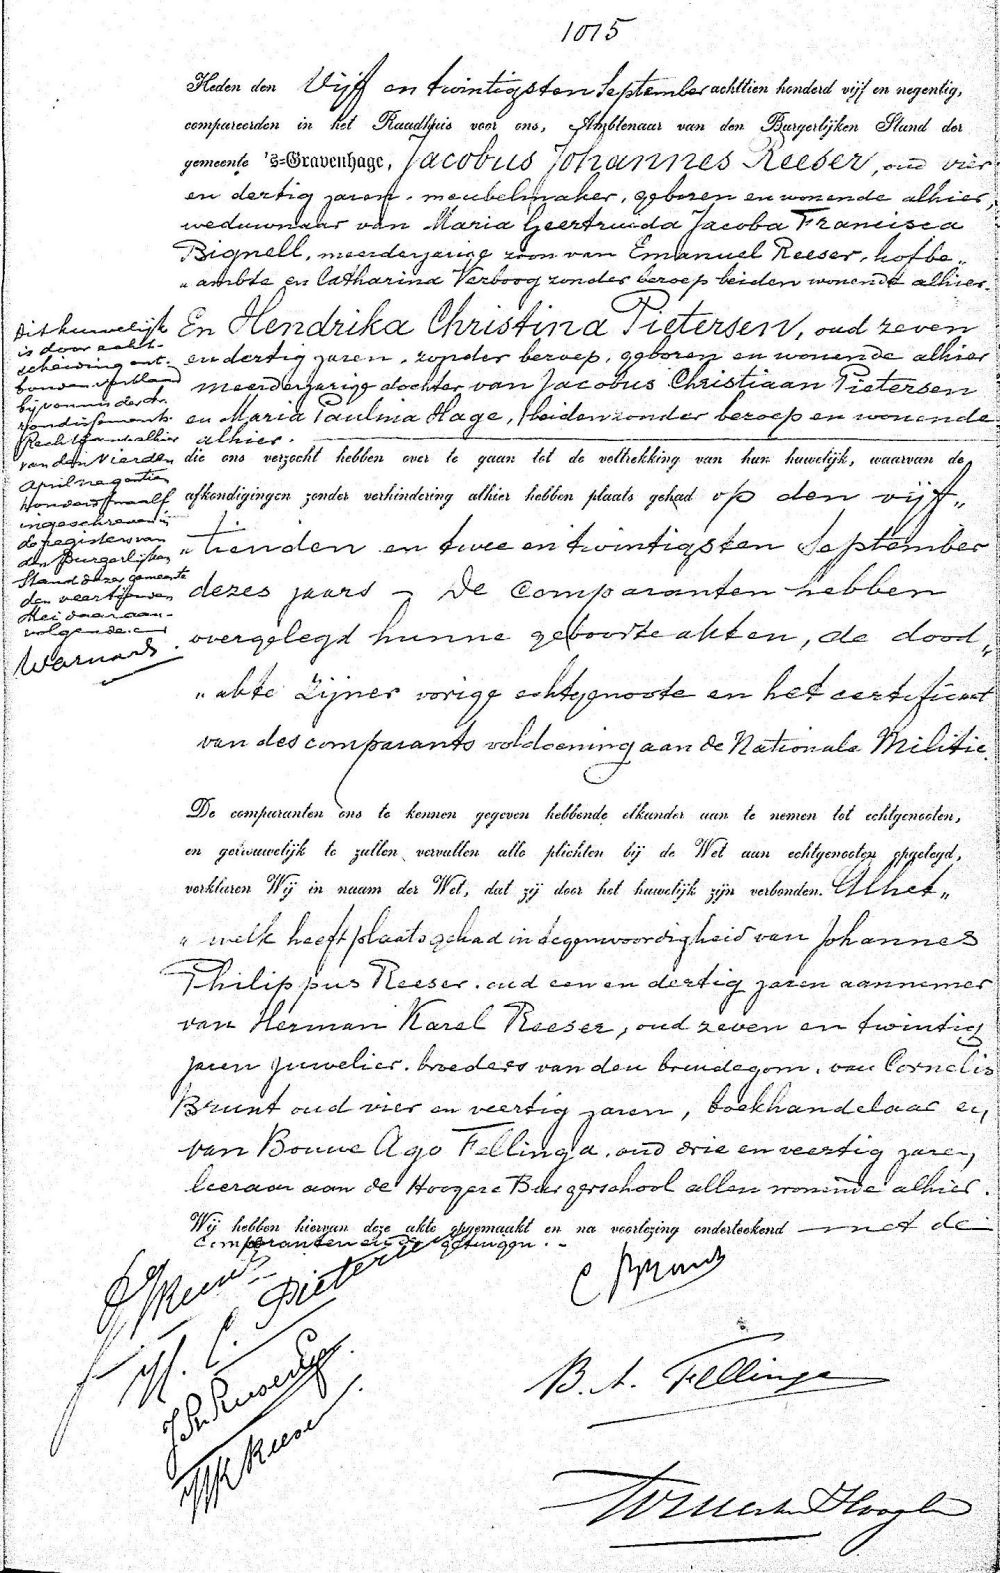 1015
Heden den Vijf en twintigsten September achttien honderd vijf en negentig,
compareerden in het Raadhuis voor ons, Ambtenaar van den Burgerlijken Stand der
gemeente 's-Gravenhage, Jacobus Johannes Reeser, oud vier
en dertig jaren, meubelmaker, geboren en wonende alhier,
weduwnaar van Maria Geertruida Jacoba Francisca
Bignell, meerderjarige zoon van Emanuel Reeser, hofbe„
„ambte en Catharina Verboog zonder beroep beiden wonende alhier.
En Hendrika Christina Pietersen, oud zeven
en dertig jaren, zonder beroep, geboren en wonende alhier
meerderjarige dochter van Jacobus Christiaan Pietersen
en Maria Paulina Hage, beiden zonder beroep en wonende
alhier.
die ons verzocht hebben over te gaan tot de voltrekking van hun huwelijk, waarvan de
afkondigingen zonder verhindering alhier hebben plaats gehad op den vijf„
„tienden en twee en twintigsten September
dezes jaars – De comparanten hebben
overgelegd hunne geboorte akten, de dood„
„akte zijner vorige echtgenoote en het certificaat
van des comparants voldoening aan de Nationale Militie.
De comparanten ons te kennen gegeven hebbende elkander aan te nemen tot echtgenooten,
en getrouwelijk te zullen vervullen alle plichten bij de Wet aan echtgenooten opgelegd,
verklaren Wij in naam der Wet, dat zij door het huwelijk zijn verbonden. Al het„
„welk heeft plaats gehad in tegenwoordigheid van Johannes
Philippus Reeser, oud een en dertig jaren aannemer
van Herman Karel Reeser, oud zeven en twintig
jaren juwelier, broeders van den bruidegom, van Cornelis
Brunt oud vier en veertig jaren, boekhandelaar en
van Bouwe Ago Fellinga, oud drie en veertig jaren,
leeraar aan de Hoogere Burgerschool allen wonende alhier.
Wij hebben hiervan deze akte opgemaakt en na voorlezing onderteekend met de
Comparanten en de getuigen. –
Dit huwelijk
is door echt-
scheiding ont-
bonden verklaard
bij vonnis der Ar-
rondissements
Rechtbank alhier
van den vierden
April negentien
honderd twaalf
ingeschreven in
de registers van
den Burgerlijken
Stand dezer gemeente
den veertienden
Mei daaraan-
volgende.
Warnars.
J J Reeser
H. C. Pietersen
C Brunt
J Ph Reeser
B. A. Fellinga
H K Reeser